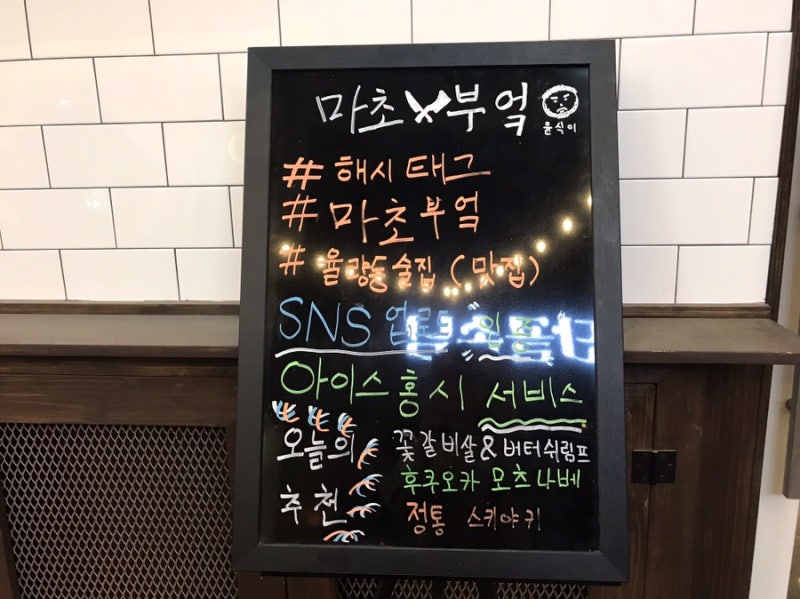 마초 부엌
윤식이
# 해시태그
# 마초부엌
# 율량동술집 (맛집)
SNS 업로드 인증
아이스홍시 서비스
오늘의 추천
꽃갈비살 & 버터쉬림프
후쿠오카 모츠나베
정통 스키야키